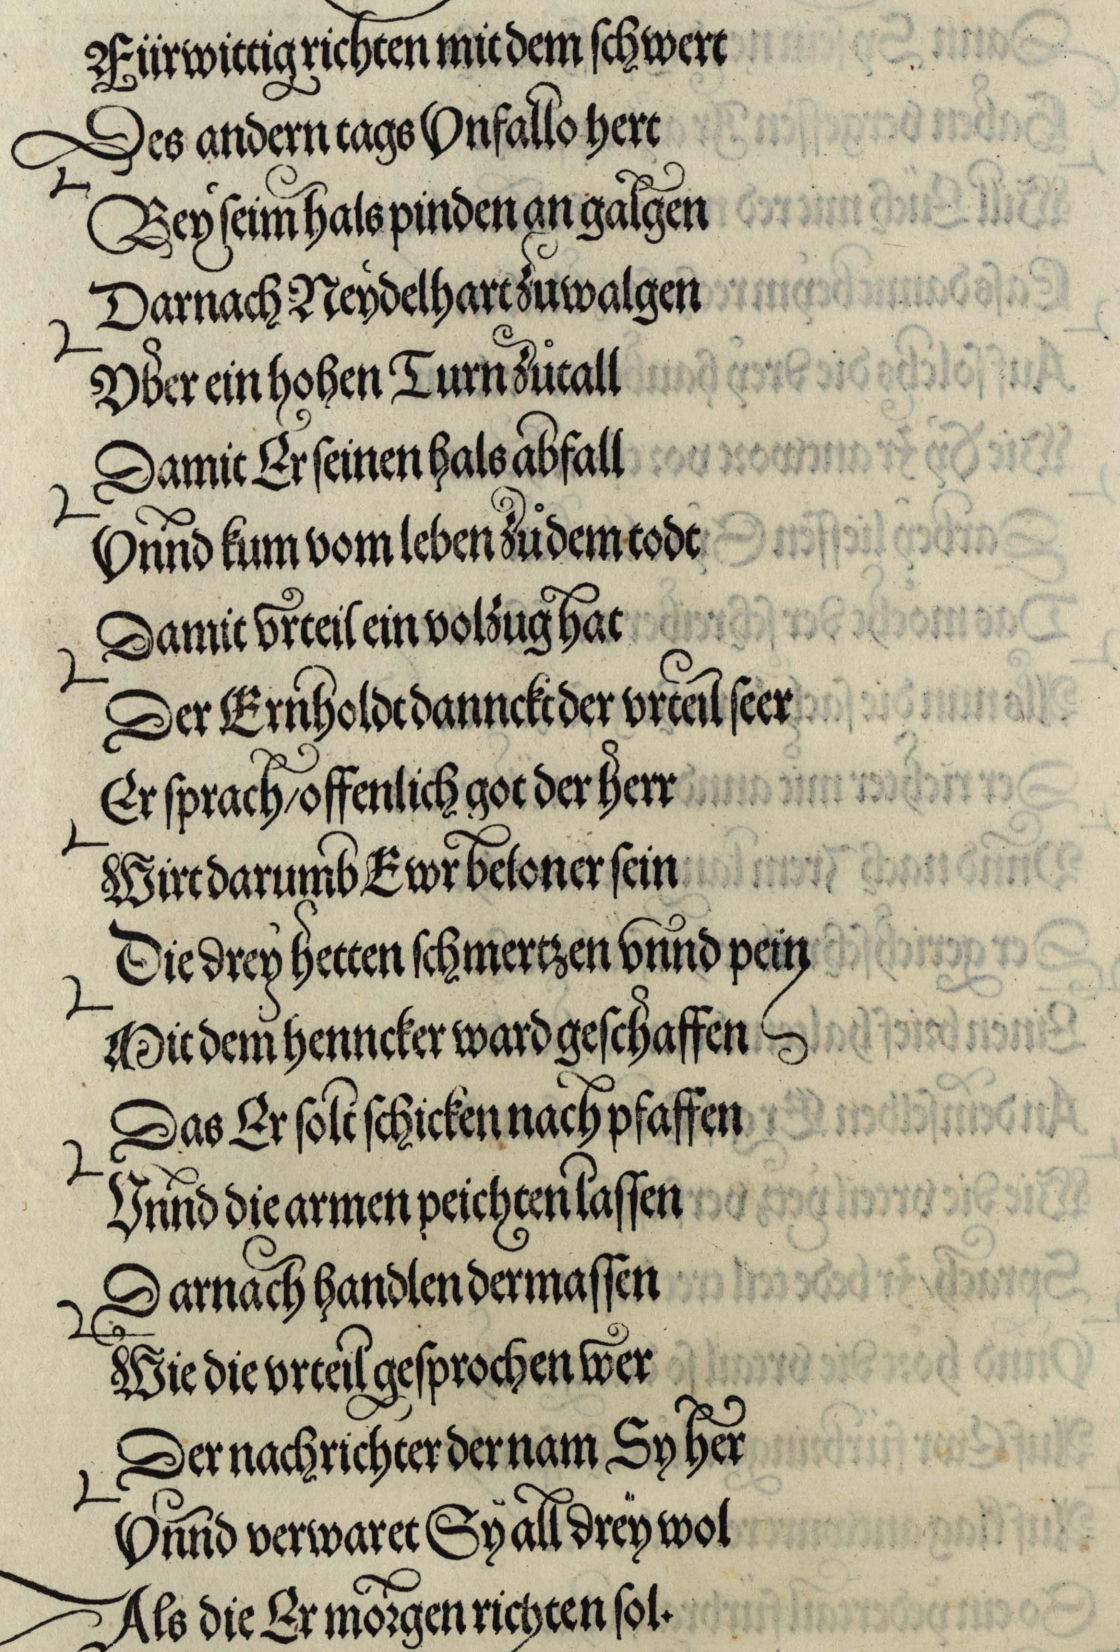 Fürwittig richten mit dem schwert
Des andern tags Vnfallo hert
Bey seim hals pinden an galgen
Darnach Neydelhart zuwalgen
Vber ein hohen Turn zůtall
Damit Er seinen hals abfall
Vnnd kum vom leben zů dem todt
Damit vrteil ein volzug hat
Der Ernholdt dannckt der vrteil seer
Er sprach/offenlich got der herr
Wirt darumb Ewr beloner sein
Die drey hetten schmertzen vnnd pein
Mit dem henncker ward geschaffen
Das Er solt schicken nach pfaffen
Vnnd die armen peichten lassen
Darnach handlen dermassen
Wie die vrteil gesprochen wer
Der nachrichter der nam Sy her
Vnnd verwaret Sy all drey wol
Als die Er morgen richten sol.